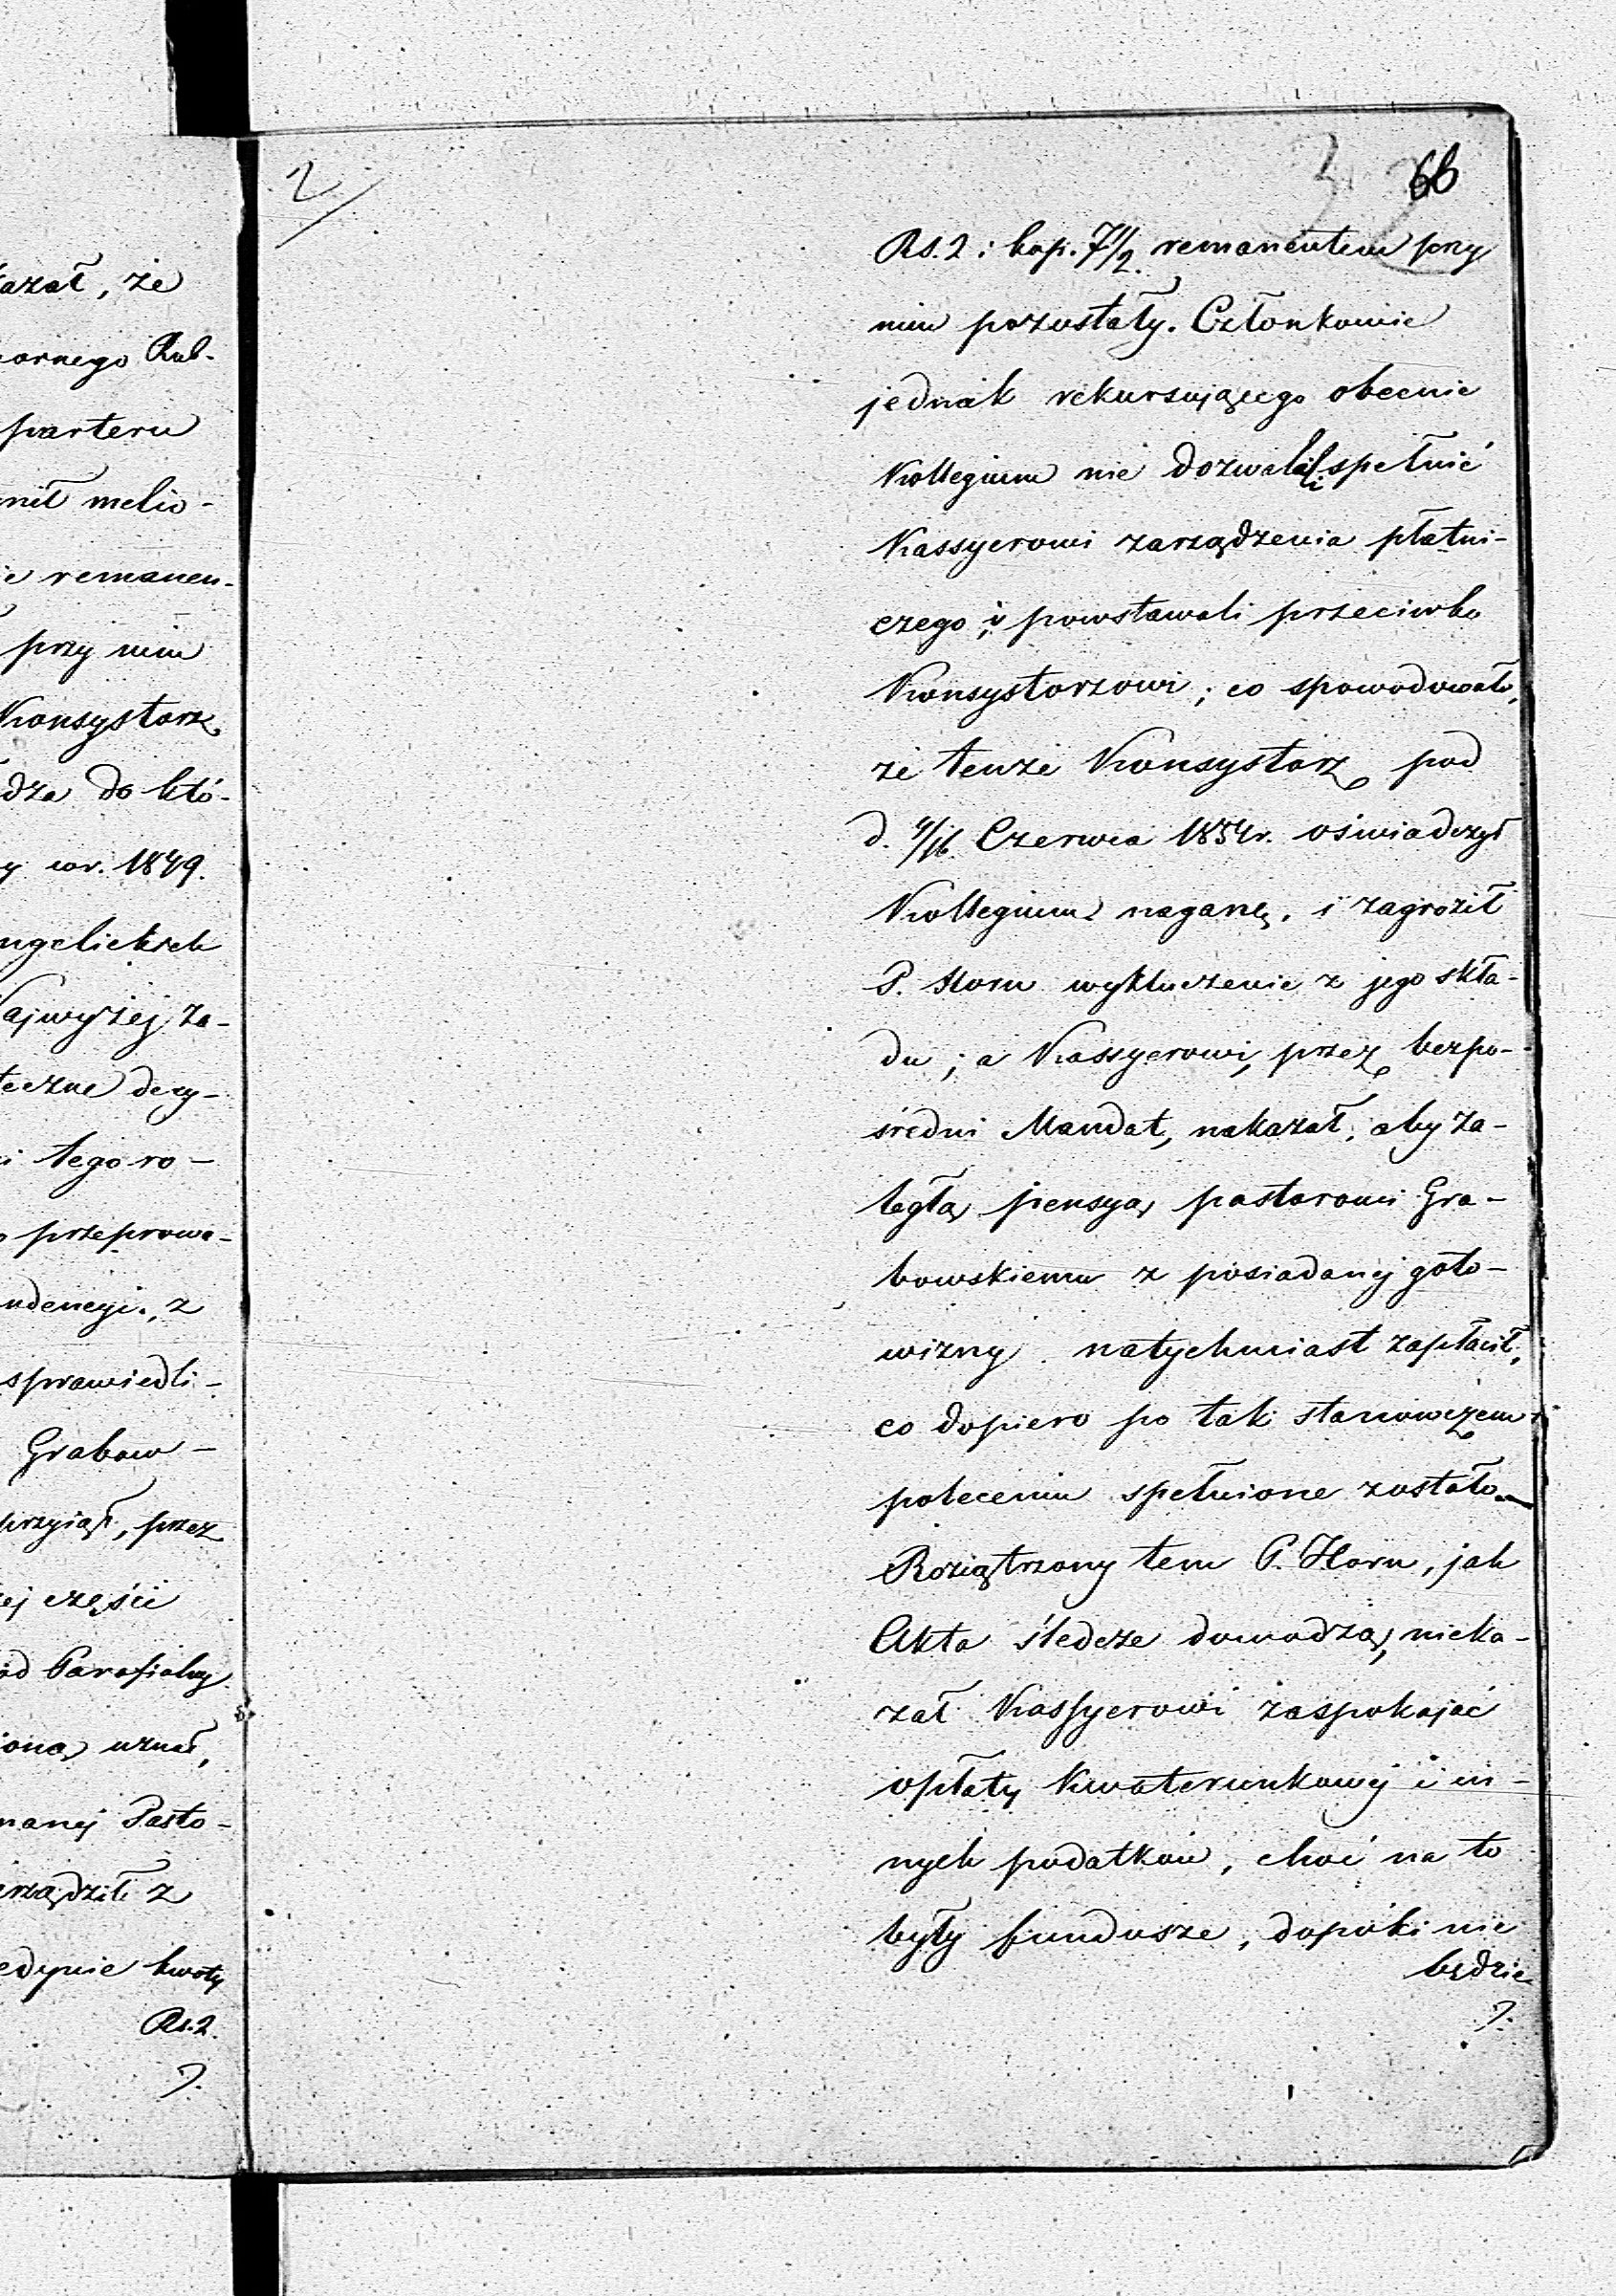 kazał, że
ornego Rub-
parteru
nił melio-
ie remanen-
przy nim
Konsystorz
dza do któ-
y w r. 1849.
ngelickich
Najwyżej za-
teczne decy-
i tego ro-
przeprowa-
ndencyi, z
sprawiedli-
Grabow-
przyiął, przez
ej części
Parafialny
ioną uznał,
manej Pasto-
rządził z
edynie kwoty
Rs. 2.
2
66
Rs. 2: kop. 7 1/2. remanentem przy
nim pozostały. Członkowie
jednak rekursującego obecnie
Kollegium nie dozwalali spełnić
Kassyerowi zarządzenia płatni-
czego, i powstawali przeciwko
Konsystorzowi; co spowodowało,
że tenże Konsystorz pod
d. 4/16. Czerwca 1854 r. oświadczył
Kollegium naganę, i zagroził
P. Horn wykluczenie z jego skła-
du; a Kassyerowi, przez bezpo-
średni Mandat, nakazał, aby za-
ległą pensyą pastorowi Gra-
bowskiemu z posiadanej goto-
wizny natychmiast zapłacił,
co dopiero po tak stanowczem
poleceniu spełnione zostało.
Roziątrzony tem P. Horn, jak
Akta śledcze dowodzą, nieka-
zał Kassyerowi zaspokajać
opłaty kwaterunkowej i in-
nych podatków, choć na to
były fundusze, dopóki nie
będzie